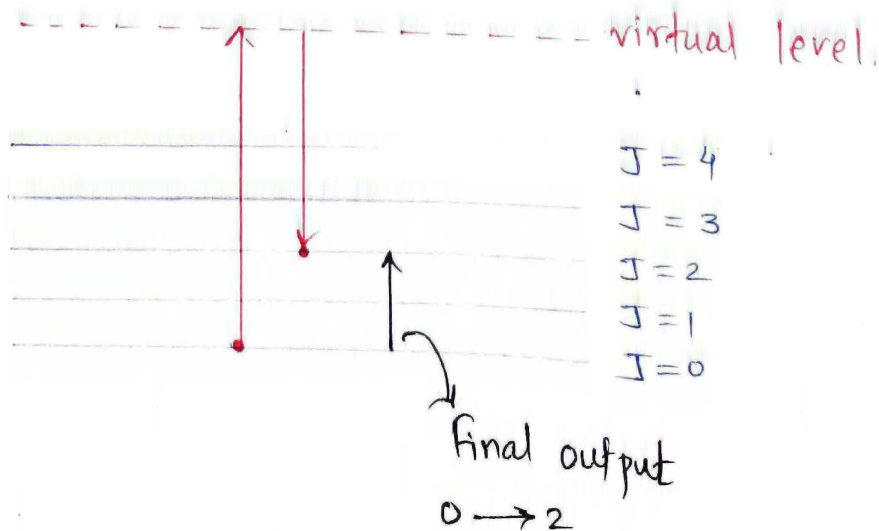 virtual level.
J = 4
J = 3
J = 2
J = 1
J = 0
Final output
0 → 2